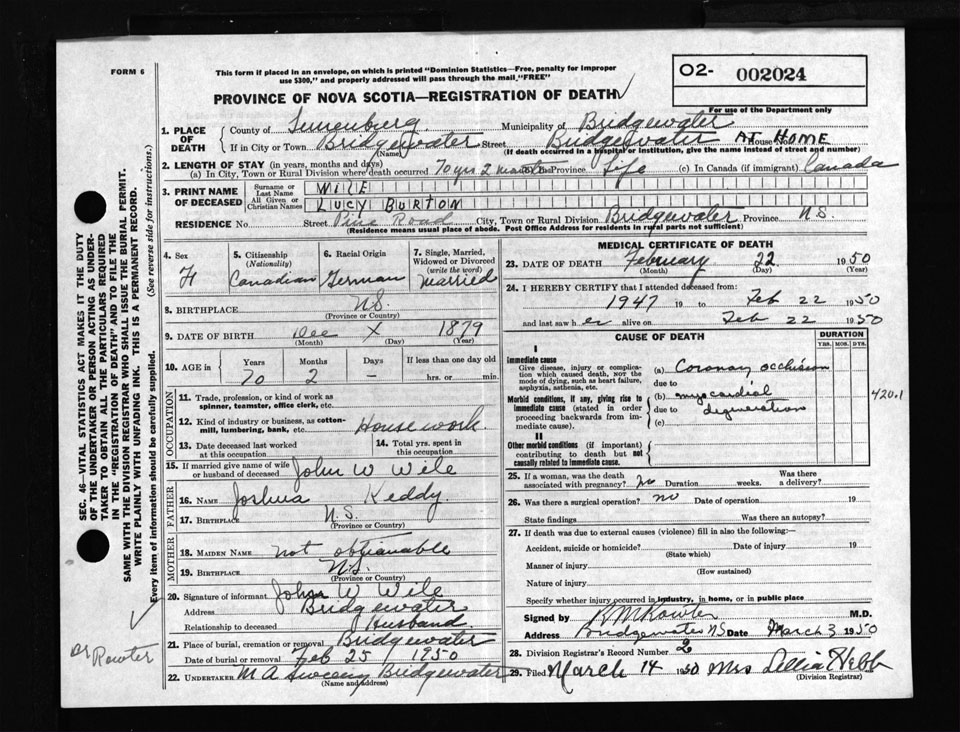 FORM 6
This form if placed in an envelope, on which is printed "Dominion Statistics—Free, penalty for improper
use $300," and properly addressed will pass through the mail, "FREE"
O2- 002024
For use of the Department only
PROVINCE OF NOVA SCOTIA—REGISTRATION OF DEATH
1. PLACE OF DEATH
County of Lunenburg Municipality of Bridgewater
If in City or Town Bridgewater (Name) Street Bridgewater House No. AT HOME
(If death occurred in a hospital or institution, give the name instead of street and number)
2. LENGTH OF STAY (in years, months and days)
(a) In City, Town or Rural Division where death occurred 70 yrs 2 months (b) In Province Life (c) In Canada (if immigrant) Canada
3. PRINT NAME OF DECEASED
Surname or Last Name WILE
All Given or Christian Names LUCY BURTON
RESIDENCE No. Street Pine Road City, Town or Rural Division Bridgewater Province N.S.
(Residence means usual place of abode. Post Office Address for residents in rural parts not sufficient)
4. Sex F
5. Citizenship (Nationality) Canadian
6. Racial Origin German
7. Single, Married, Widowed or Divorced (write the word) married
8. BIRTHPLACE N.S.
(Province or Country)
9. DATE OF BIRTH Dec X 1879
(Month) (Day) (Year)
10. AGE in Years Months Days If less than one day old
70 2 – hrs. or min.
OCCUPATION
11. Trade, profession, or kind of work as
spinner, teamster, office clerk, etc.
12. Kind of industry or business, as cotton-
mill, lumbering, bank, etc. House work
13. Date deceased last worked
at this occupation
14. Total yrs. spent in
this occupation
15. If married give name of wife
or husband of deceased John W Wile
FATHER
16. NAME Joshua Keddy
17. BIRTHPLACE N.S.
(Province or Country)
MOTHER
18. MAIDEN NAME not obtianable
19. BIRTHPLACE N.S.
(Province or Country)
20. Signature of informant John W Wile
Address Bridgewater
Relationship to deceased Husband
21. Place of burial, cremation or removal Bridgewater
Date of burial or removal Feb 25 1950
22. UNDERTAKER M A Sweeny Bridgewater
(Name and Address)
MEDICAL CERTIFICATE OF DEATH
23. DATE OF DEATH February 22 1950
(Month) (Day) (Year)
24. I HEREBY CERTIFY that I attended deceased from:
1947 19 to Feb 22 1950
and last saw her alive on Feb 22 1950
CAUSE OF DEATH
DURATION
YRS. MOS. DYS.
I
Immediate cause
Give disease, injury or complica-
tion which caused death, NOT the
mode of dying, such as heart failure,
asphyxia, asthenia, etc.
(a) Coronary occlusion
due to
Morbid conditions, if any, giving rise to
immediate cause (stated in order
proceeding backwards from im-
mediate cause).
(b) myocardial
due to degeneration
(c)
420.1
II
Other morbid conditions (if important)
contributing to death but not
causally related to immediate cause.
25. If a woman, was the death
associated with pregnancy? no Duration weeks. Was there
a delivery?
26. Was there a surgical operation? no Date of operation 19
State findings Was there an autopsy?
27. If death was due to external causes (violence) fill in also the following:
Accident, suicide or homicide? Date of injury 19
(State which)
Manner of injury
(How sustained)
Nature of injury
Specify whether injury occurred in industry, in home, or in public place
Signed by M.D.
Address Bridgewater N.S. Date March 3 1950
28. Division Registrar's Record Number 2
29. Filed March 14 1950 Mrs Dellia Hebb
(Division Registrar)
SEC. 46—VITAL STATISTICS ACT MAKES IT THE DUTY
OF THE UNDERTAKER OR PERSON ACTING AS UNDER-
TAKER TO OBTAIN ALL THE PARTICULARS REQUIRED
IN THE "REGISTRATION OF DEATH" AND TO FILE THE
SAME WITH THE DIVISION REGISTRAR WHO SHALL ISSUE THE BURIAL PERMIT.
WRITE PLAINLY WITH UNFADING INK. THIS IS A PERMANENT RECORD.
Every item of information should be carefully supplied. (See reverse side for instructions.)
Dr Rowter